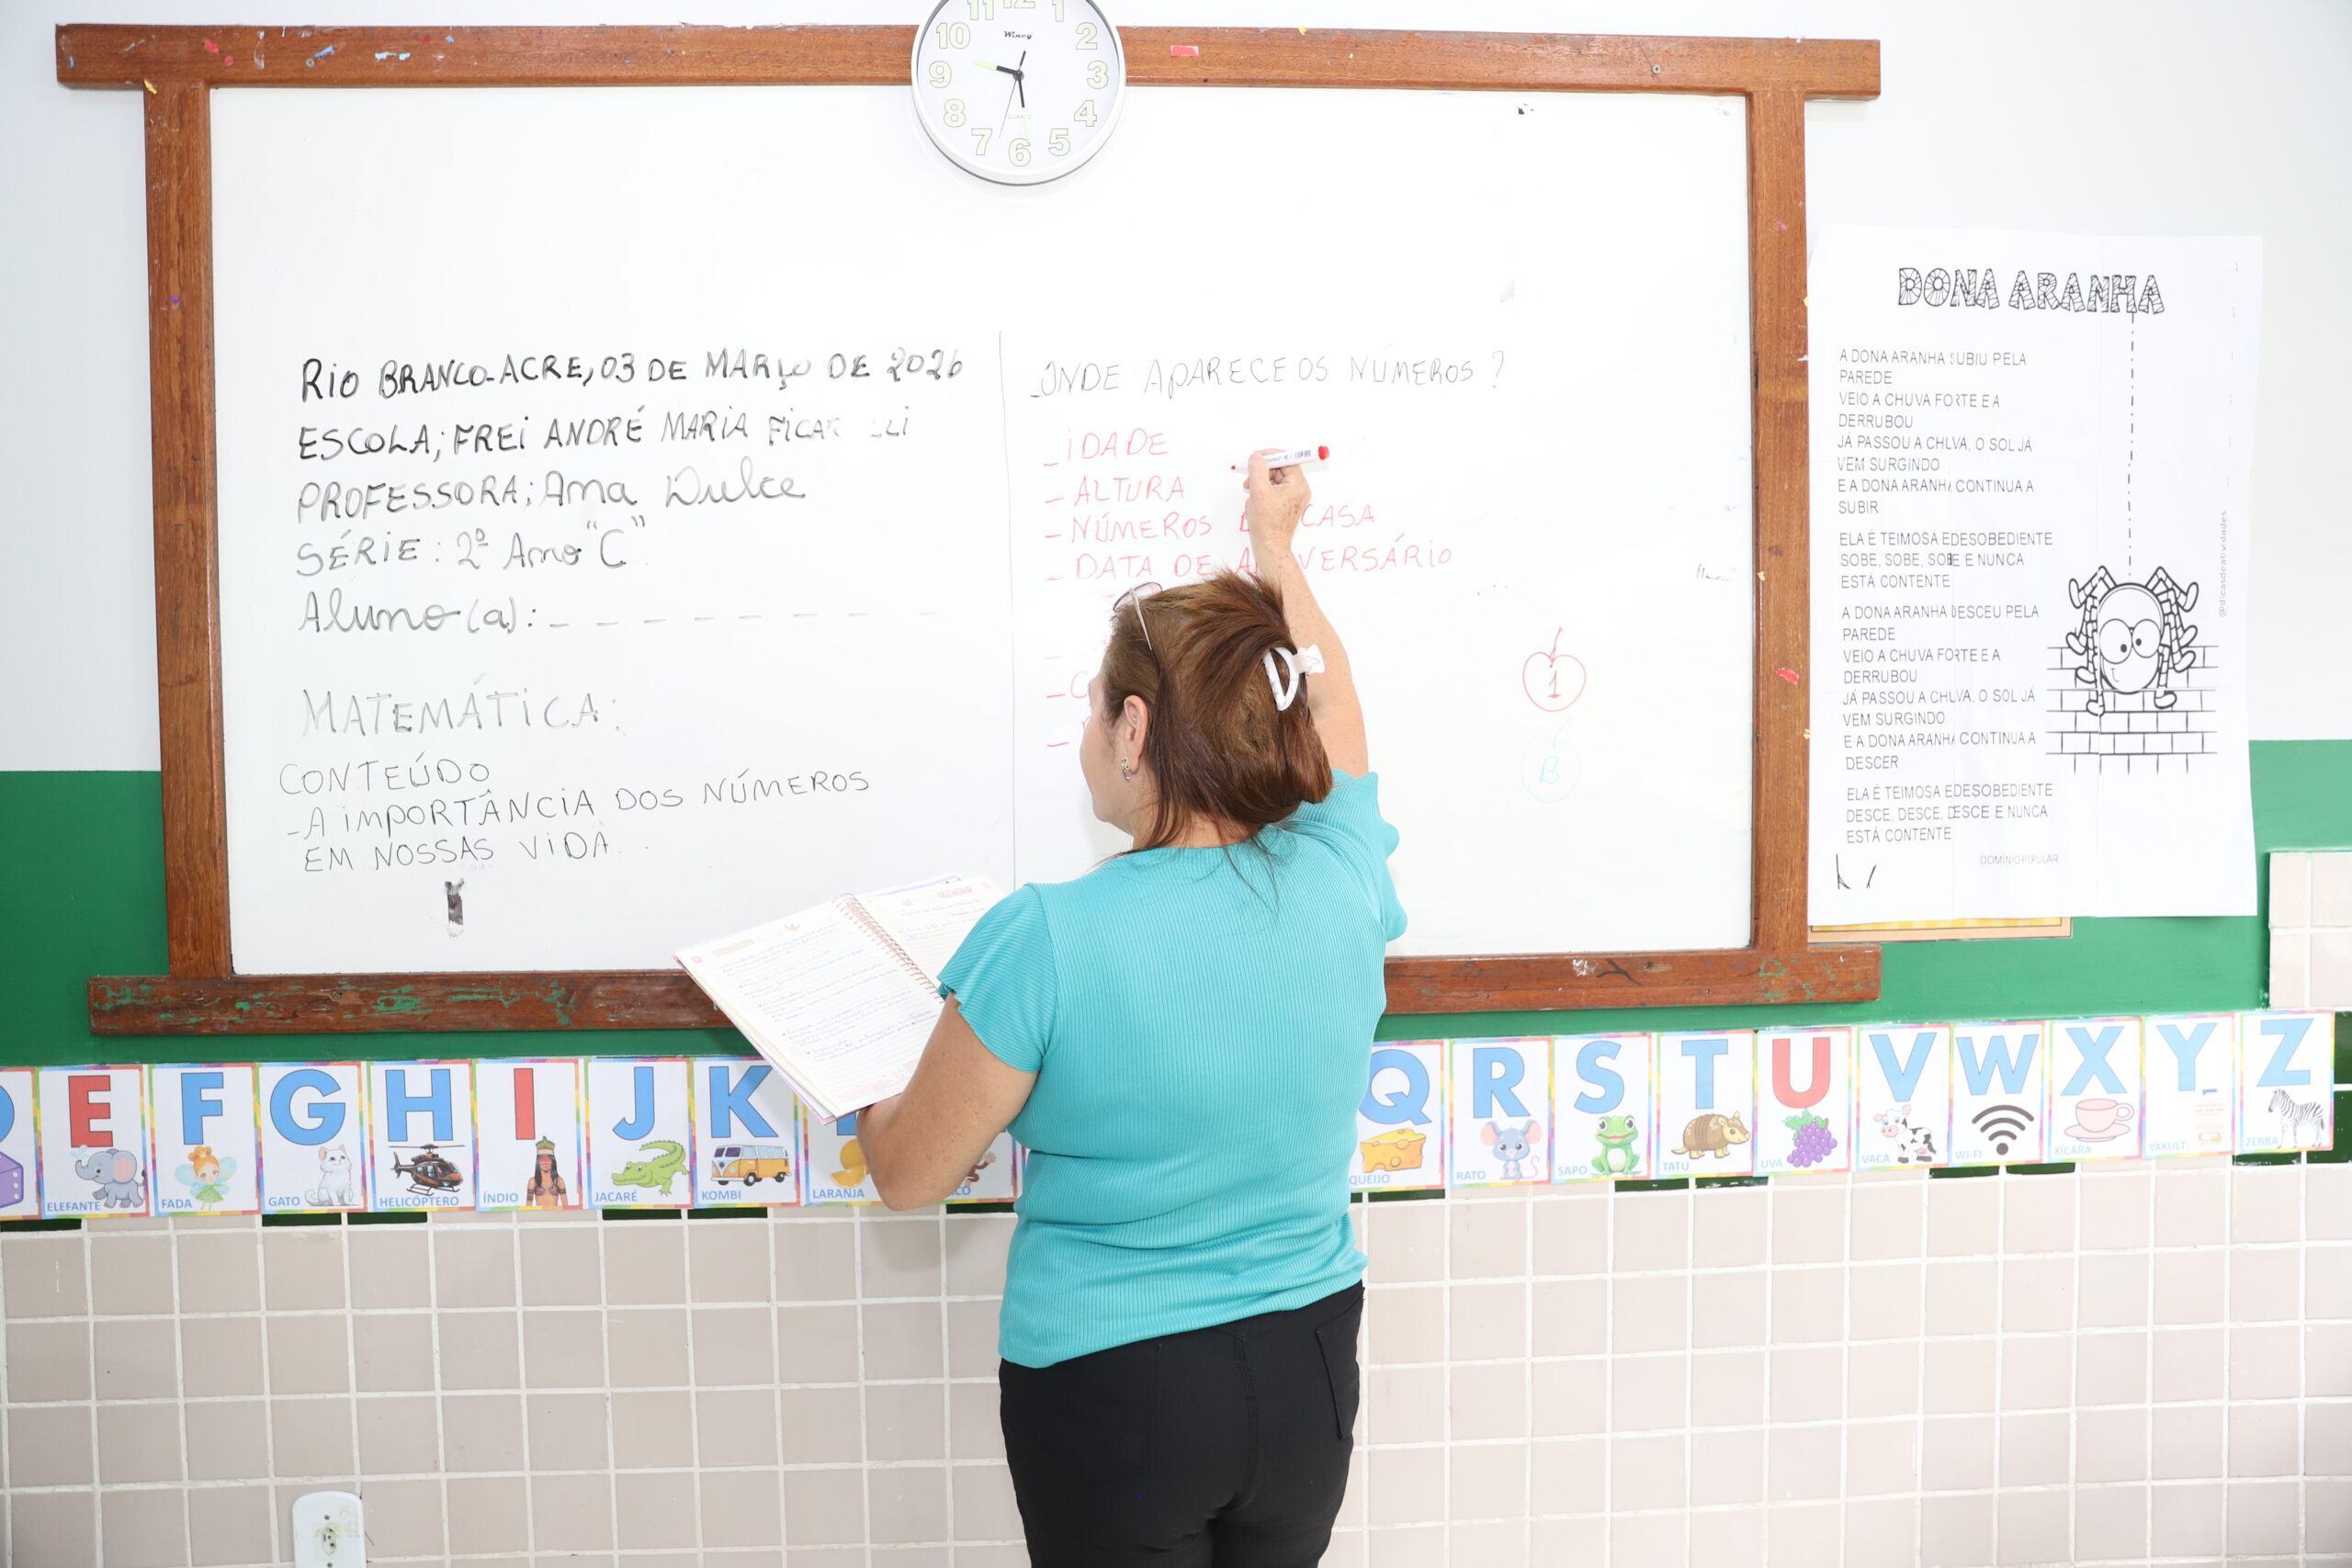 11 12 1
10 2
9 3
8 4
7 6 5
RIO BRANCO-ACRE, 03 DE MARÇO DE 2026
ESCOLA; FREI ANDRÉ MARIA
PROFESSORA; Ana Dulce
SÉRIE: 2º Ano "C"
Aluno(a): _ _ _ _ _ _ _ _ _
MATEMÁTICA:
CONTEÚDO
-A IMPORTÂNCIA DOS NÚMEROS
EM NOSSAS VIDA
ONDE APARECE OS NÚMEROS?
- IDADE
- ALTURA
- NÚMEROS CASA
- DATA DE
1
B
DONA ARANHA
A DONA ARANHA SUBIU PELA
PAREDE
VEIO A CHUVA FORTE E A
DERRUBOU
JÁ PASSOU A CHUVA, O SOL JÁ
VEM SURGINDO
E A DONA ARANHA CONTINUA A
SUBIR
ELA É TEIMOSA E DESOBEDIENTE
SOBE, SOBE, SOBE E NUNCA
ESTÁ CONTENTE
A DONA ARANHA DESCEU PELA
PAREDE
VEIO A CHUVA FORTE E A
DERRUBOU
JÁ PASSOU A CHUVA, O SOL JÁ
VEM SURGINDO
E A DONA ARANHA CONTINUA A
DESCER
ELA É TEIMOSA E DESOBEDIENTE
DESCE, DESCE, DESCE E NUNCA
ESTÁ CONTENTE
DOMÍNIO POPULAR
@dicasdeatividades
E F G H I J K Q R S T U V W X Y Z
ELEFANTE FADA GATO HELICÓPTERO ÍNDIO JACARÉ KOMBI LARANJA QUEIJO RATO SAPO TATU UVA VACA WI-FI XÍCARA YAKULT ZEBRA